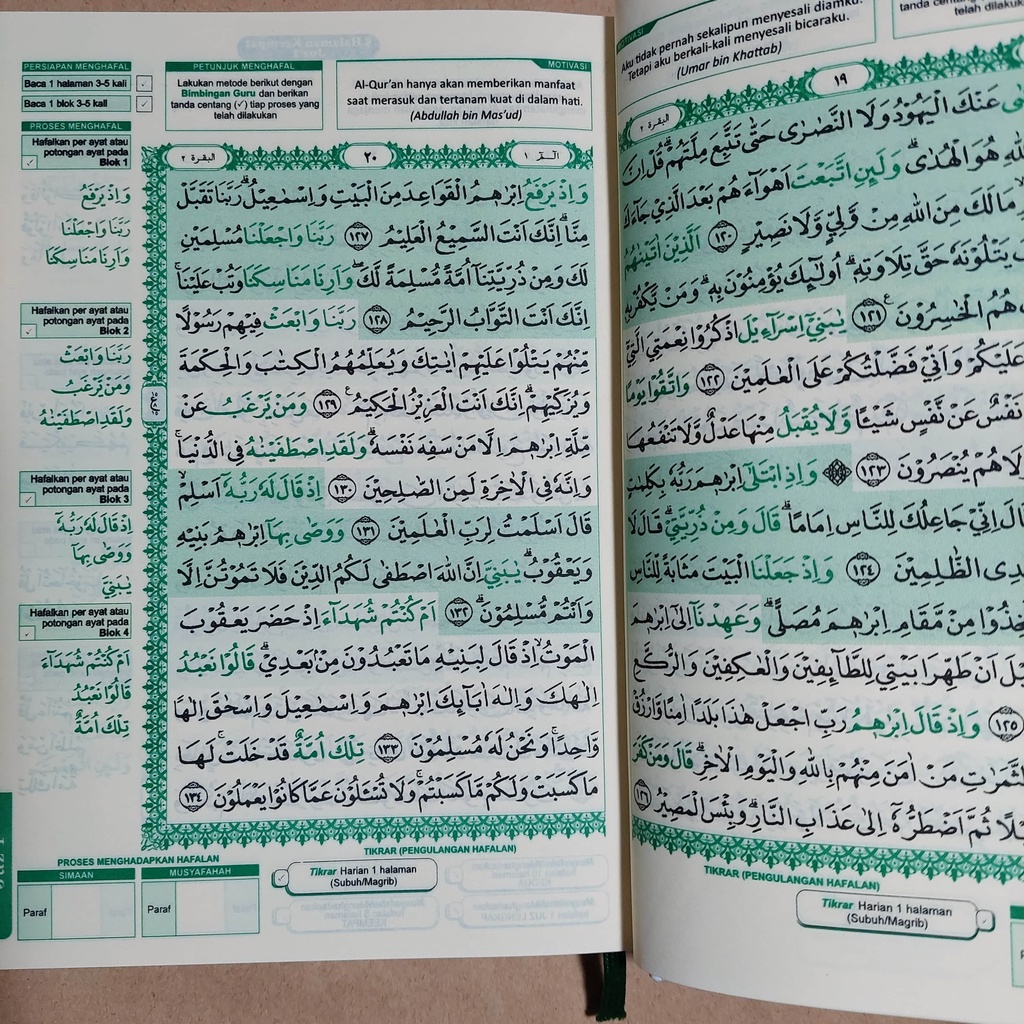 PERSIAPAN MENGHAFAL
Baca 1 halaman 3-5 kali
Baca 1 blok 3-5 kali
PROSES MENGHAFAL
Hafalkan per ayat atau
potongan ayat pada
Blok 1
وَاِذْ يَرْفَعُ
رَبَّنَا وَاجْعَلْنَا
وَاَرِنَا مَنَاسِكَنَا
Hafalkan per ayat atau
potongan ayat pada
Blok 2
رَبَّنَا وَابْعَثْ
وَمَنْ يَّرْغَبُ
وَلَقَدِ اصْطَفَيْنٰهُ
Hafalkan per ayat atau
potongan ayat pada
Blok 3
اِذْ قَالَ لَهٗ رَبُّهٗٓ
وَوَصّٰى بِهَآ
يٰبَنِيَّ
Hafalkan per ayat atau
potongan ayat pada
Blok 4
اَمْ كُنْتُمْ شُهَدَآءَ
قَالُوْا نَعْبُدُ
تِلْكَ اُمَّةٌ
PETUNJUK MENGHAFAL
Lakukan metode berikut dengan
Bimbingan Guru dan berikan
tanda centang (✓) tiap proses yang
telah dilakukan
MOTIVASI
Al-Qur'an hanya akan memberikan manfaat
saat merasuk dan tertanam kuat di dalam hati.
(Abdullah bin Mas'ud)
الۤمّۤ ١
٢٠
البقرة ٢
وَاِذْ يَرْفَعُ اِبْرٰهٖمُ الْقَوَاعِدَ مِنَ الْبَيْتِ وَاِسْمٰعِيْلُۗ رَبَّنَا تَقَبَّلْ
مِنَّاۗ اِنَّكَ اَنْتَ السَّمِيْعُ الْعَلِيْمُ ١٢٧ رَبَّنَا وَاجْعَلْنَا مُسْلِمَيْنِ
لَكَ وَمِنْ ذُرِّيَّتِنَآ اُمَّةً مُّسْلِمَةً لَّكَۖ وَاَرِنَا مَنَاسِكَنَا وَتُبْ عَلَيْنَاۚ
اِنَّكَ اَنْتَ التَّوَّابُ الرَّحِيْمُ ١٢٨ رَبَّنَا وَابْعَثْ فِيْهِمْ رَسُوْلًا
مِّنْهُمْ يَتْلُوْا عَلَيْهِمْ اٰيٰتِكَ وَيُعَلِّمُهُمُ الْكِتٰبَ وَالْحِكْمَةَ
وَيُزَكِّيْهِمْۗ اِنَّكَ اَنْتَ الْعَزِيْزُ الْحَكِيْمُ ࣖ ١٢٩ وَمَنْ يَّرْغَبُ عَنْ
مِّلَّةِ اِبْرٰهٖمَ اِلَّا مَنْ سَفِهَ نَفْسَهٗۗ وَلَقَدِ اصْطَفَيْنٰهُ فِى الدُّنْيَاۚ
وَاِنَّهٗ فِى الْاٰخِرَةِ لَمِنَ الصّٰلِحِيْنَ ١٣٠ اِذْ قَالَ لَهٗ رَبُّهٗٓ اَسْلِمْۙ
قَالَ اَسْلَمْتُ لِرَبِّ الْعٰلَمِيْنَ ١٣١ وَوَصّٰى بِهَآ اِبْرٰهٖمُ بَنِيْهِ
وَيَعْقُوْبُۗ يٰبَنِيَّ اِنَّ اللّٰهَ اصْطَفٰى لَكُمُ الدِّيْنَ فَلَا تَمُوْتُنَّ اِلَّا
وَاَنْتُمْ مُّسْلِمُوْنَۗ ١٣٢ اَمْ كُنْتُمْ شُهَدَآءَ اِذْ حَضَرَ يَعْقُوْبَ
الْمَوْتُۙ اِذْ قَالَ لِبَنِيْهِ مَا تَعْبُدُوْنَ مِنْۢ بَعْدِيْۗ قَالُوْا نَعْبُدُ
اِلٰهَكَ وَاِلٰهَ اٰبَآىِٕكَ اِبْرٰهٖمَ وَاِسْمٰعِيْلَ وَاِسْحٰقَ اِلٰهًا
وَّاحِدًاۚ وَنَحْنُ لَهٗ مُسْلِمُوْنَ ١٣٣ تِلْكَ اُمَّةٌ قَدْ خَلَتْۚ لَهَا
مَا كَسَبَتْ وَلَكُمْ مَّا كَسَبْتُمْۚ وَلَا تُسْـَٔلُوْنَ عَمَّا كَانُوْا يَعْمَلُوْنَ ١٣٤
PROSES MENGHADAPKAN HAFALAN
SIMAAN
MUSYAFAHAH
Paraf
Paraf
TIKRAR (PENGULANGAN HAFALAN)
Tikrar Harian 1 halaman
(Subuh/Magrib)
MOTIVASI
Aku tidak pernah sekalipun menyesali diamku.
Tetapi aku berkali-kali menyesali bicaraku.
(Umar bin Khattab)
tanda centang
telah dilakukan
١٩
البقرة ٢
عَنْكَ الْيَهُوْدُ وَلَا النَّصٰرٰى حَتّٰى تَتَّبِعَ مِلَّتَهُمْۗ قُلْ اِنَّ
هُوَ الْهُدٰىۗ وَلَىِٕنِ اتَّبَعْتَ اَهْوَآءَهُمْ بَعْدَ الَّذِيْ جَآءَكَ
مَا لَكَ مِنَ اللّٰهِ مِنْ وَّلِيٍّ وَّلَا نَصِيْرٍ ١٢٠ اَلَّذِيْنَ اٰتَيْنٰهُمُ
يَتْلُوْنَهٗ حَقَّ تِلَاوَتِهٖۗ اُولٰۤىِٕكَ يُؤْمِنُوْنَ بِهٖۗ وَمَنْ يَّكْفُرْ بِهٖ
هُمُ الْخٰسِرُوْنَ ࣖ ١٢١ يٰبَنِيْٓ اِسْرَاۤءِيْلَ اذْكُرُوْا نِعْمَتِيَ الَّتِيْٓ
عَلَيْكُمْ وَاَنِّيْ فَضَّلْتُكُمْ عَلَى الْعٰلَمِيْنَ ١٢٢ وَاتَّقُوْا يَوْمًا
نَفْسٌ عَنْ نَّفْسٍ شَيْـًٔا وَّلَا يُقْبَلُ مِنْهَا عَدْلٌ وَّلَا تَنْفَعُهَا
وَّلَا هُمْ يُنْصَرُوْنَ ١٢٣ ۞ وَاِذِ ابْتَلٰٓى اِبْرٰهٖمَ رَبُّهٗ بِكَلِمٰتٍ
قَالَ اِنِّيْ جَاعِلُكَ لِلنَّاسِ اِمَامًاۗ قَالَ وَمِنْ ذُرِّيَّتِيْۗ قَالَ لَا
الظّٰلِمِيْنَ ١٢٤ وَاِذْ جَعَلْنَا الْبَيْتَ مَثَابَةً لِّلنَّاسِ
مِنْ مَّقَامِ اِبْرٰهٖمَ مُصَلًّىۗ وَعَهِدْنَآ اِلٰٓى اِبْرٰهٖمَ
اَنْ طَهِّرَا بَيْتِيَ لِلطَّاۤىِٕفِيْنَ وَالْعٰكِفِيْنَ وَالرُّكَّعِ
١٢٥ وَاِذْ قَالَ اِبْرٰهٖمُ رَبِّ اجْعَلْ هٰذَا بَلَدًا اٰمِنًا وَّارْزُقْ
الثَّمَرٰتِ مَنْ اٰمَنَ مِنْهُمْ بِاللّٰهِ وَالْيَوْمِ الْاٰخِرِۗ قَالَ وَمَنْ كَفَرَ
ثُمَّ اَضْطَرُّهٗٓ اِلٰى عَذَابِ النَّارِۗ وَبِئْسَ الْمَصِيْرُ ١٢٦
TIKRAR (PENGULANGAN HAFALAN)
Tikrar Harian 1 halaman
(Subuh/Magrib)